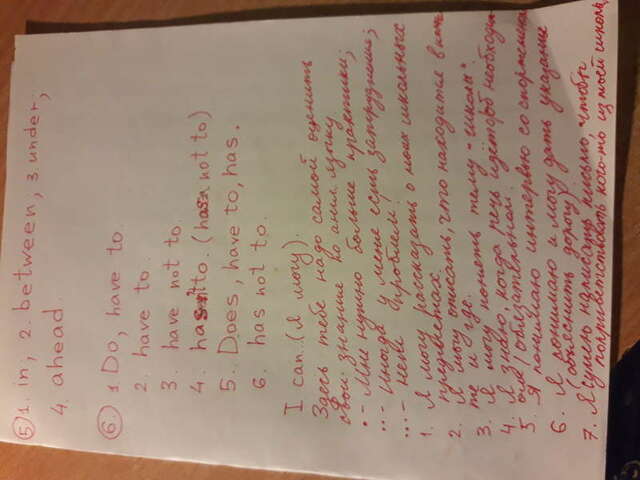 ⑤ 1. in, 2. between, 3 under,
4. ahead.
⑥ 1. Do, have to.
2. have to.
3. have not to.
4. hasn't to. (has not to)
5. Does, have to, has.
6. has not to.
I can...(я могу).
Здесь тебе надо самой оценить
свои знания по англ. языку
•- Мне нужно больше практики;
:- иногда у меня есть затруднения;
- нет проблем.
1. Я могу рассказать о моих школьных
предметах.
2. Я могу описать, что находится в
те и где.
3. Я могу понять тему "школы"
4. Я знаю, когда речь идёт об необходи
5. Я понимаю интервью со спортсменом
6. Я понимаю и могу дать указание
(объяснить дорогу)
7. Я сумею написать письмо чтобы
поприветствовать кого-то из моей школы,